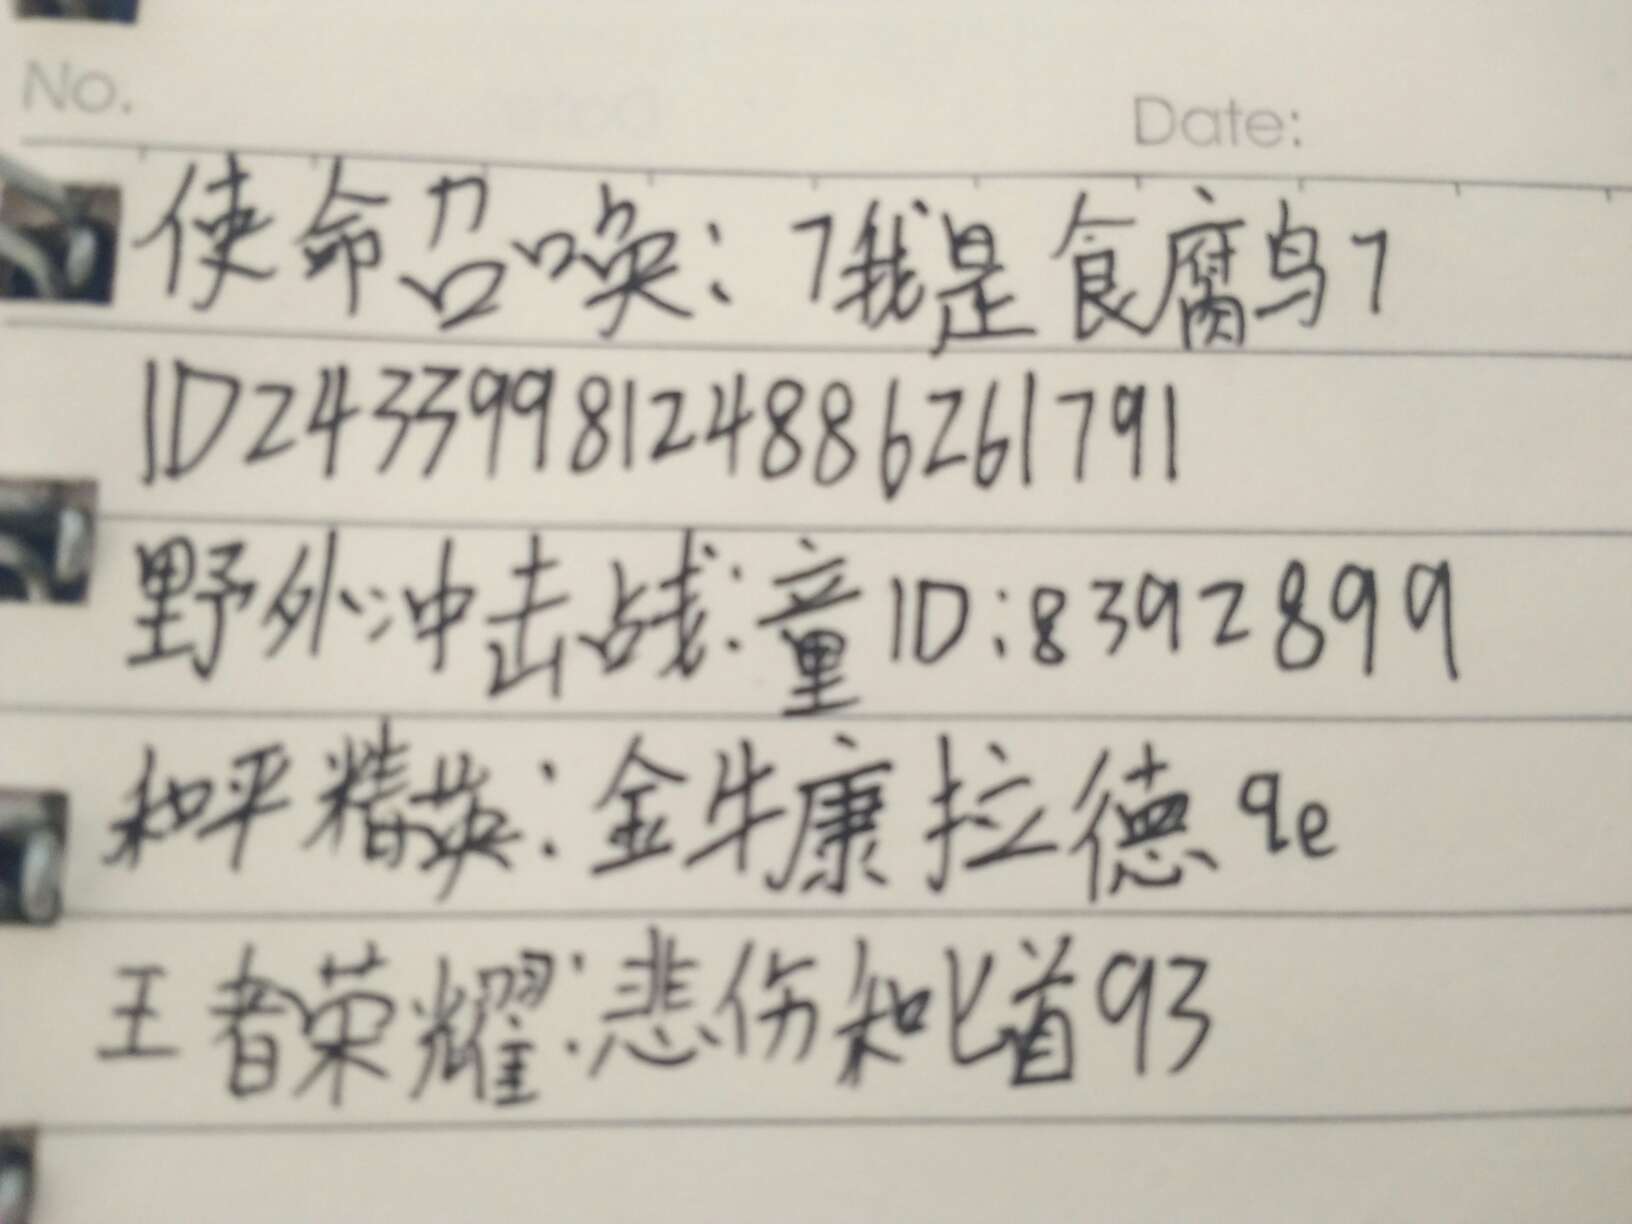 No. Date:
使命召唤：7我是食腐鸟7
ID2433998124886261791
野外冲击战：童ID：8392899
和平精英：金牛康拉德qe
王者荣耀：悲伤知道93